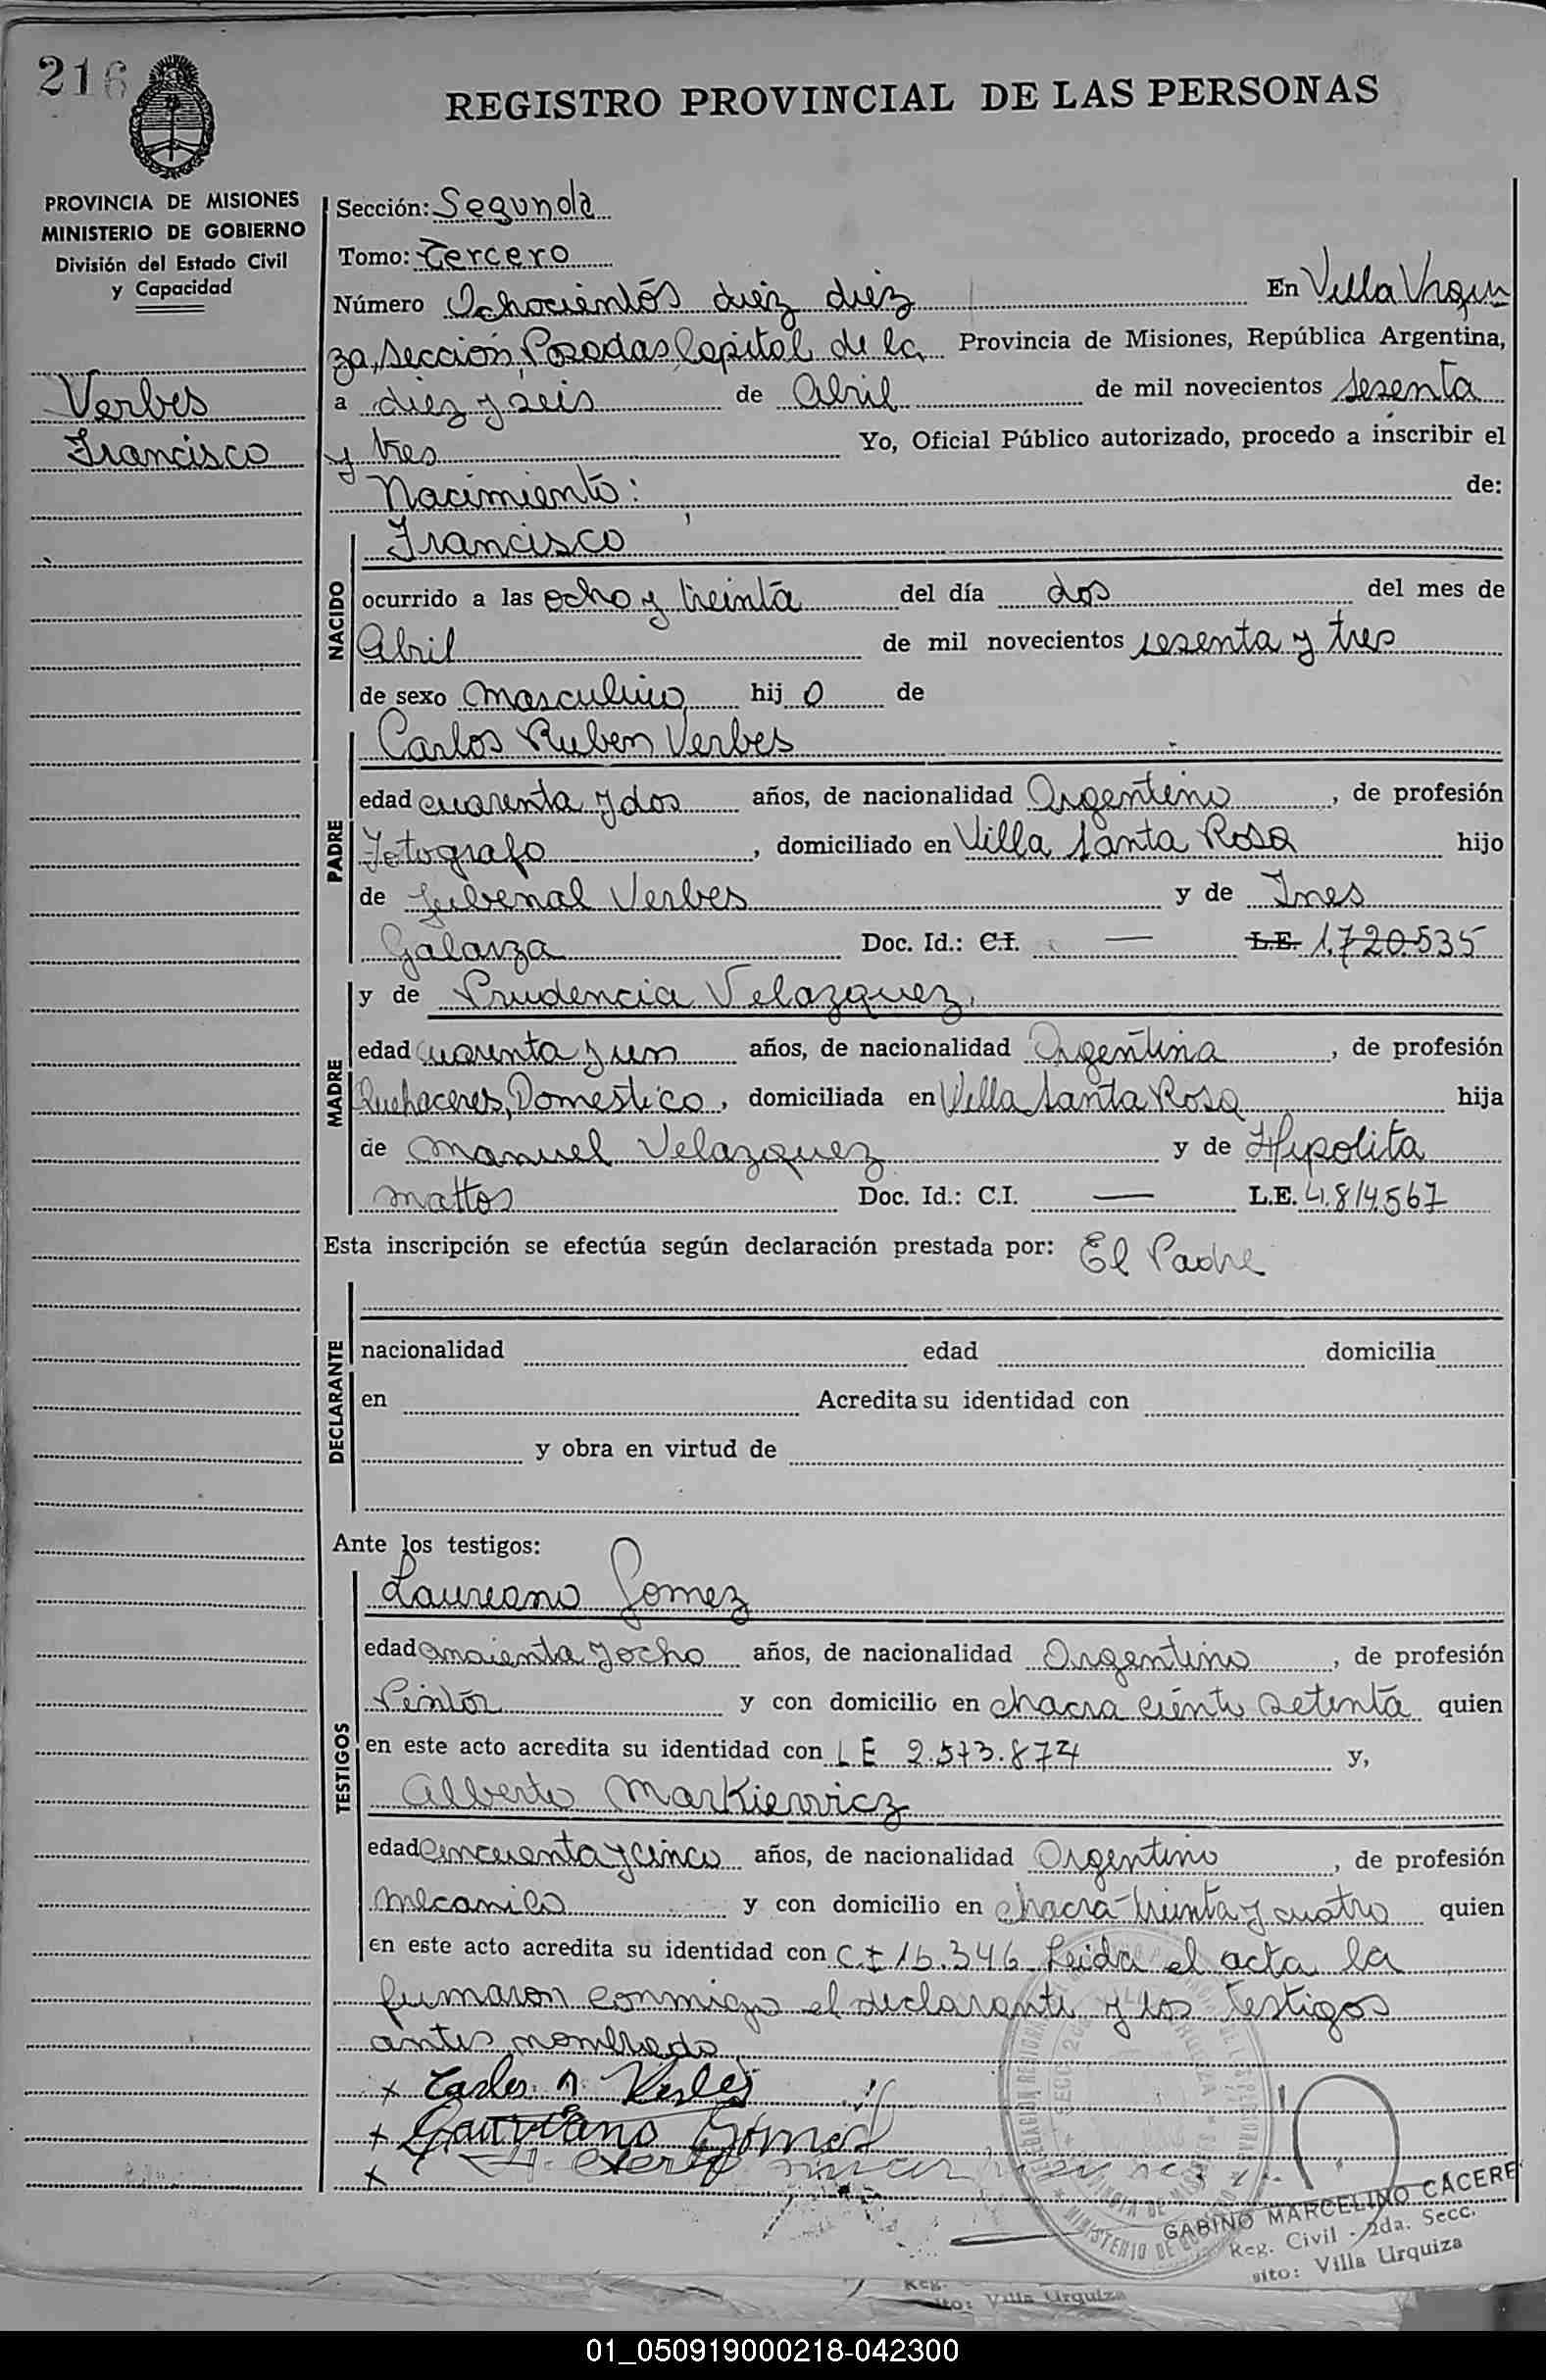 216
REGISTRO PROVINCIAL DE LAS PERSONAS
PROVINCIA DE MISIONES
MINISTERIO DE GOBIERNO
División del Estado Civil
y Capacidad
Verbes
Francisco
Sección: Segunda
Tomo: Tercero
Número Ochocientos diez diez En Villa Urqui
za, Sección, Posadas Capital de la Provincia de Misiones, República Argentina,
a diez y seis de Abril de mil novecientos sesenta
y tres Yo, Oficial Público autorizado, procedo a inscribir el
Nacimiento: de:
NACIDO
Francisco
ocurrido a las ocho y treinta del día dos del mes de
Abril de mil novecientos sesenta y tres
de sexo Masculino hij o de
PADRE
Carlos Ruben Verbes
edad cuarenta y dos años, de nacionalidad Argentino, de profesión
Fotografo, domiciliado en Villa Santa Rosa hijo
de Jubenal Verbes y de Ines
Galarza Doc. Id.: C.I. — L.E. 1.720.535
MADRE
y de Prudencia Velazquez,
edad cuarenta y un años, de nacionalidad Argentina, de profesión
Quehaceres, Domestico, domiciliada en Villa Santa Rosa hija
de Manuel Velazquez y de Hipolita
Mattos Doc. Id.: C.I. — L.E. 4.814.567
Esta inscripción se efectúa según declaración prestada por: El Padre
DECLARANTE
nacionalidad edad domicilia
en Acredita su identidad con
y obra en virtud de
Ante los testigos:
TESTIGOS
Laureano Gomez
edad y ocho años, de nacionalidad Argentino, de profesión
Pintor y con domicilio en chacra ciento setenta quien
en este acto acredita su identidad con LE 2.573.874 y,
Alberto Markiewicz
edad Cincuenta y cinco años, de nacionalidad Argentino, de profesión
mecanico y con domicilio en chacra treinta y cuatro quien
en este acto acredita su identidad con C.I 16.346 Leida el acta la
firmaron conmigo el declarante y los testigos
antes nombrado
x Carlos R. Verbes
x Laureano Gómez
x
GABINO MARCELINO CACERE
Reg. Civil - 2da. Secc.
sito: Villa Urquiza
Reg.
sito: Villa Urquiza
01_050919000218-042300